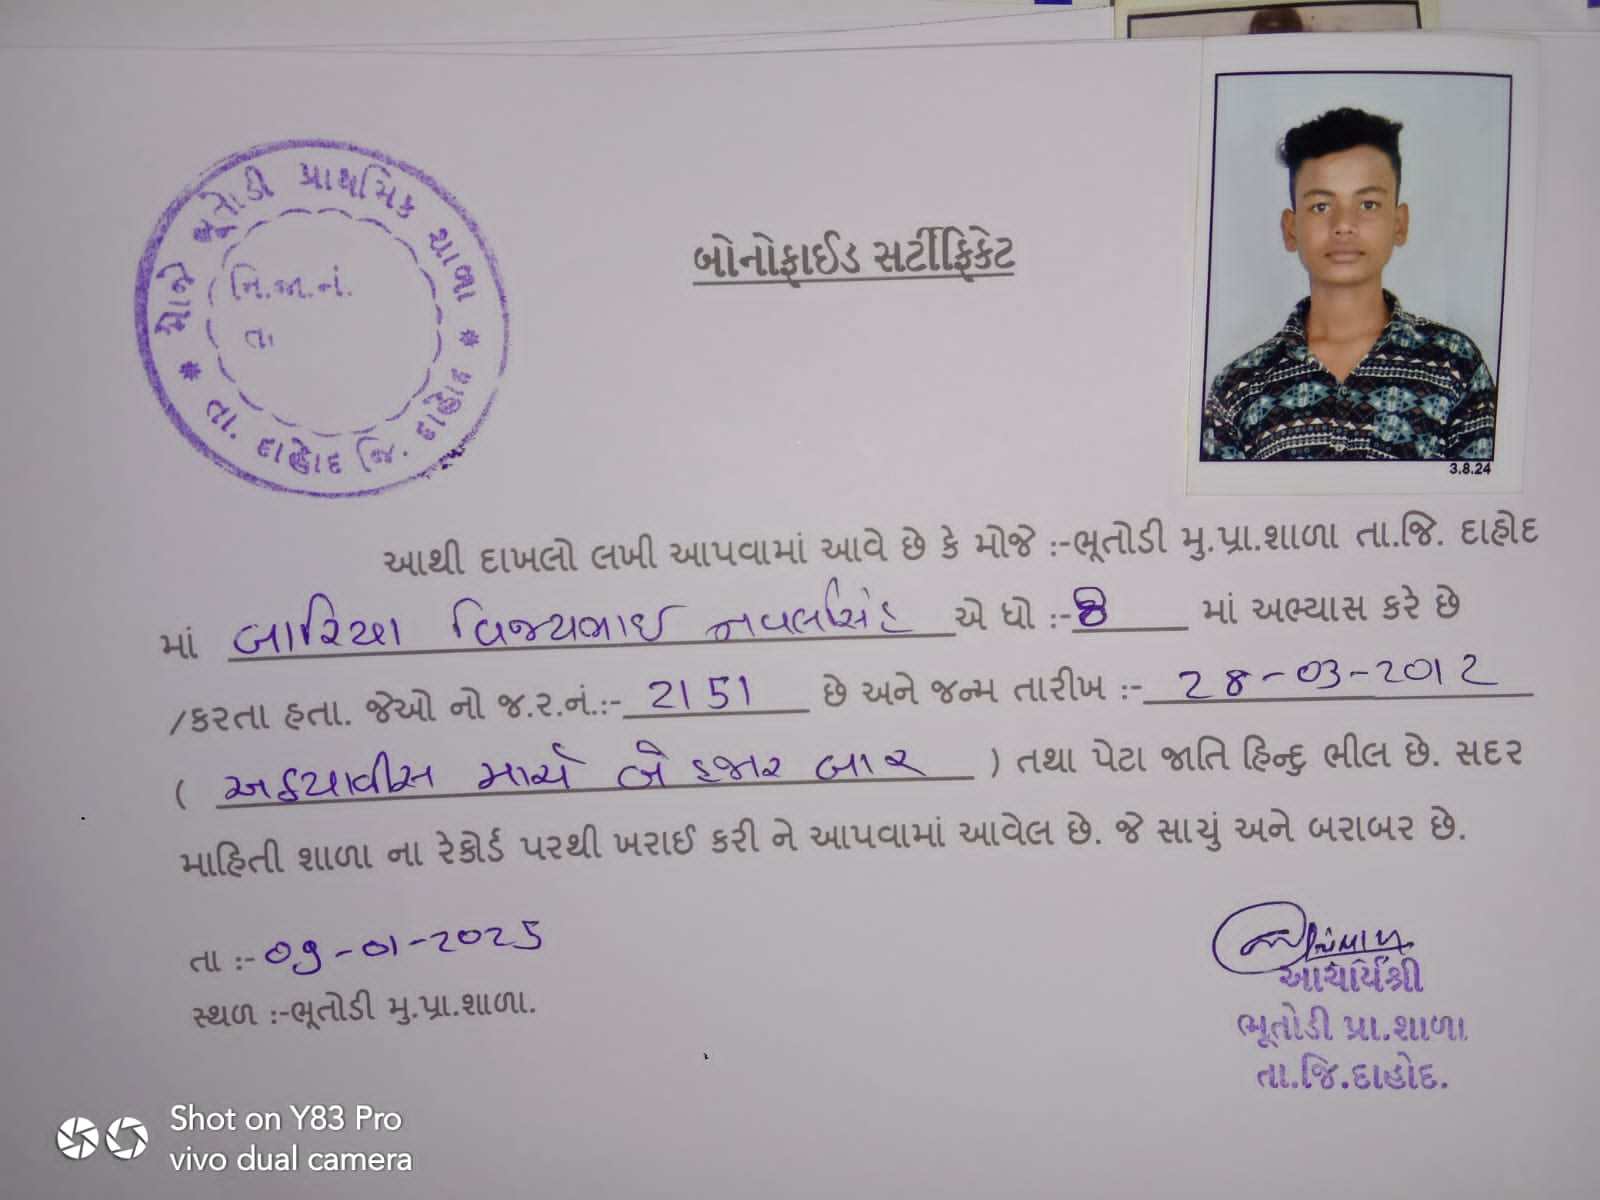 મોજે ભૂતોડી પ્રાથમિક શાળા
નિ.જા.નં.
તા
* તા. દાહોદ જિ. દાહોદ *
બોનોફાઈડ સર્ટીફિકેટ
3.8.24
આથી દાખલો લખી આપવામાં આવે છે કે મોજે :-ભૂતોડી મુ.પ્રા.શાળા તા.જિ. દાહોદ
માં બારિયા વિજયભાઈ નવલસિંહ એ ધો :- 8 માં અભ્યાસ કરે છે
/કરતા હતા. જેઓ નો જ.ર.નં.:- 2151 છે અને જન્મ તારીખ :- 28-03-2012
( અઠયાવીસ માર્ચ બે હજાર બાર ) તથા પેટા જાતિ હિન્દુ ભીલ છે. સદર
માહિતી શાળા ના રેકોર્ડ પરથી ખરાઈ કરી ને આપવામાં આવેલ છે. જે સાચું અને બરાબર છે.
તા :- 09-01-2025
સ્થળ :-ભૂતોડી મુ.પ્રા.શાળા.
આચાર્યશ્રી
ભૂતોડી પ્રા.શાળા
તા.જિ.દાહોદ.
Shot on Y83 Pro
vivo dual camera